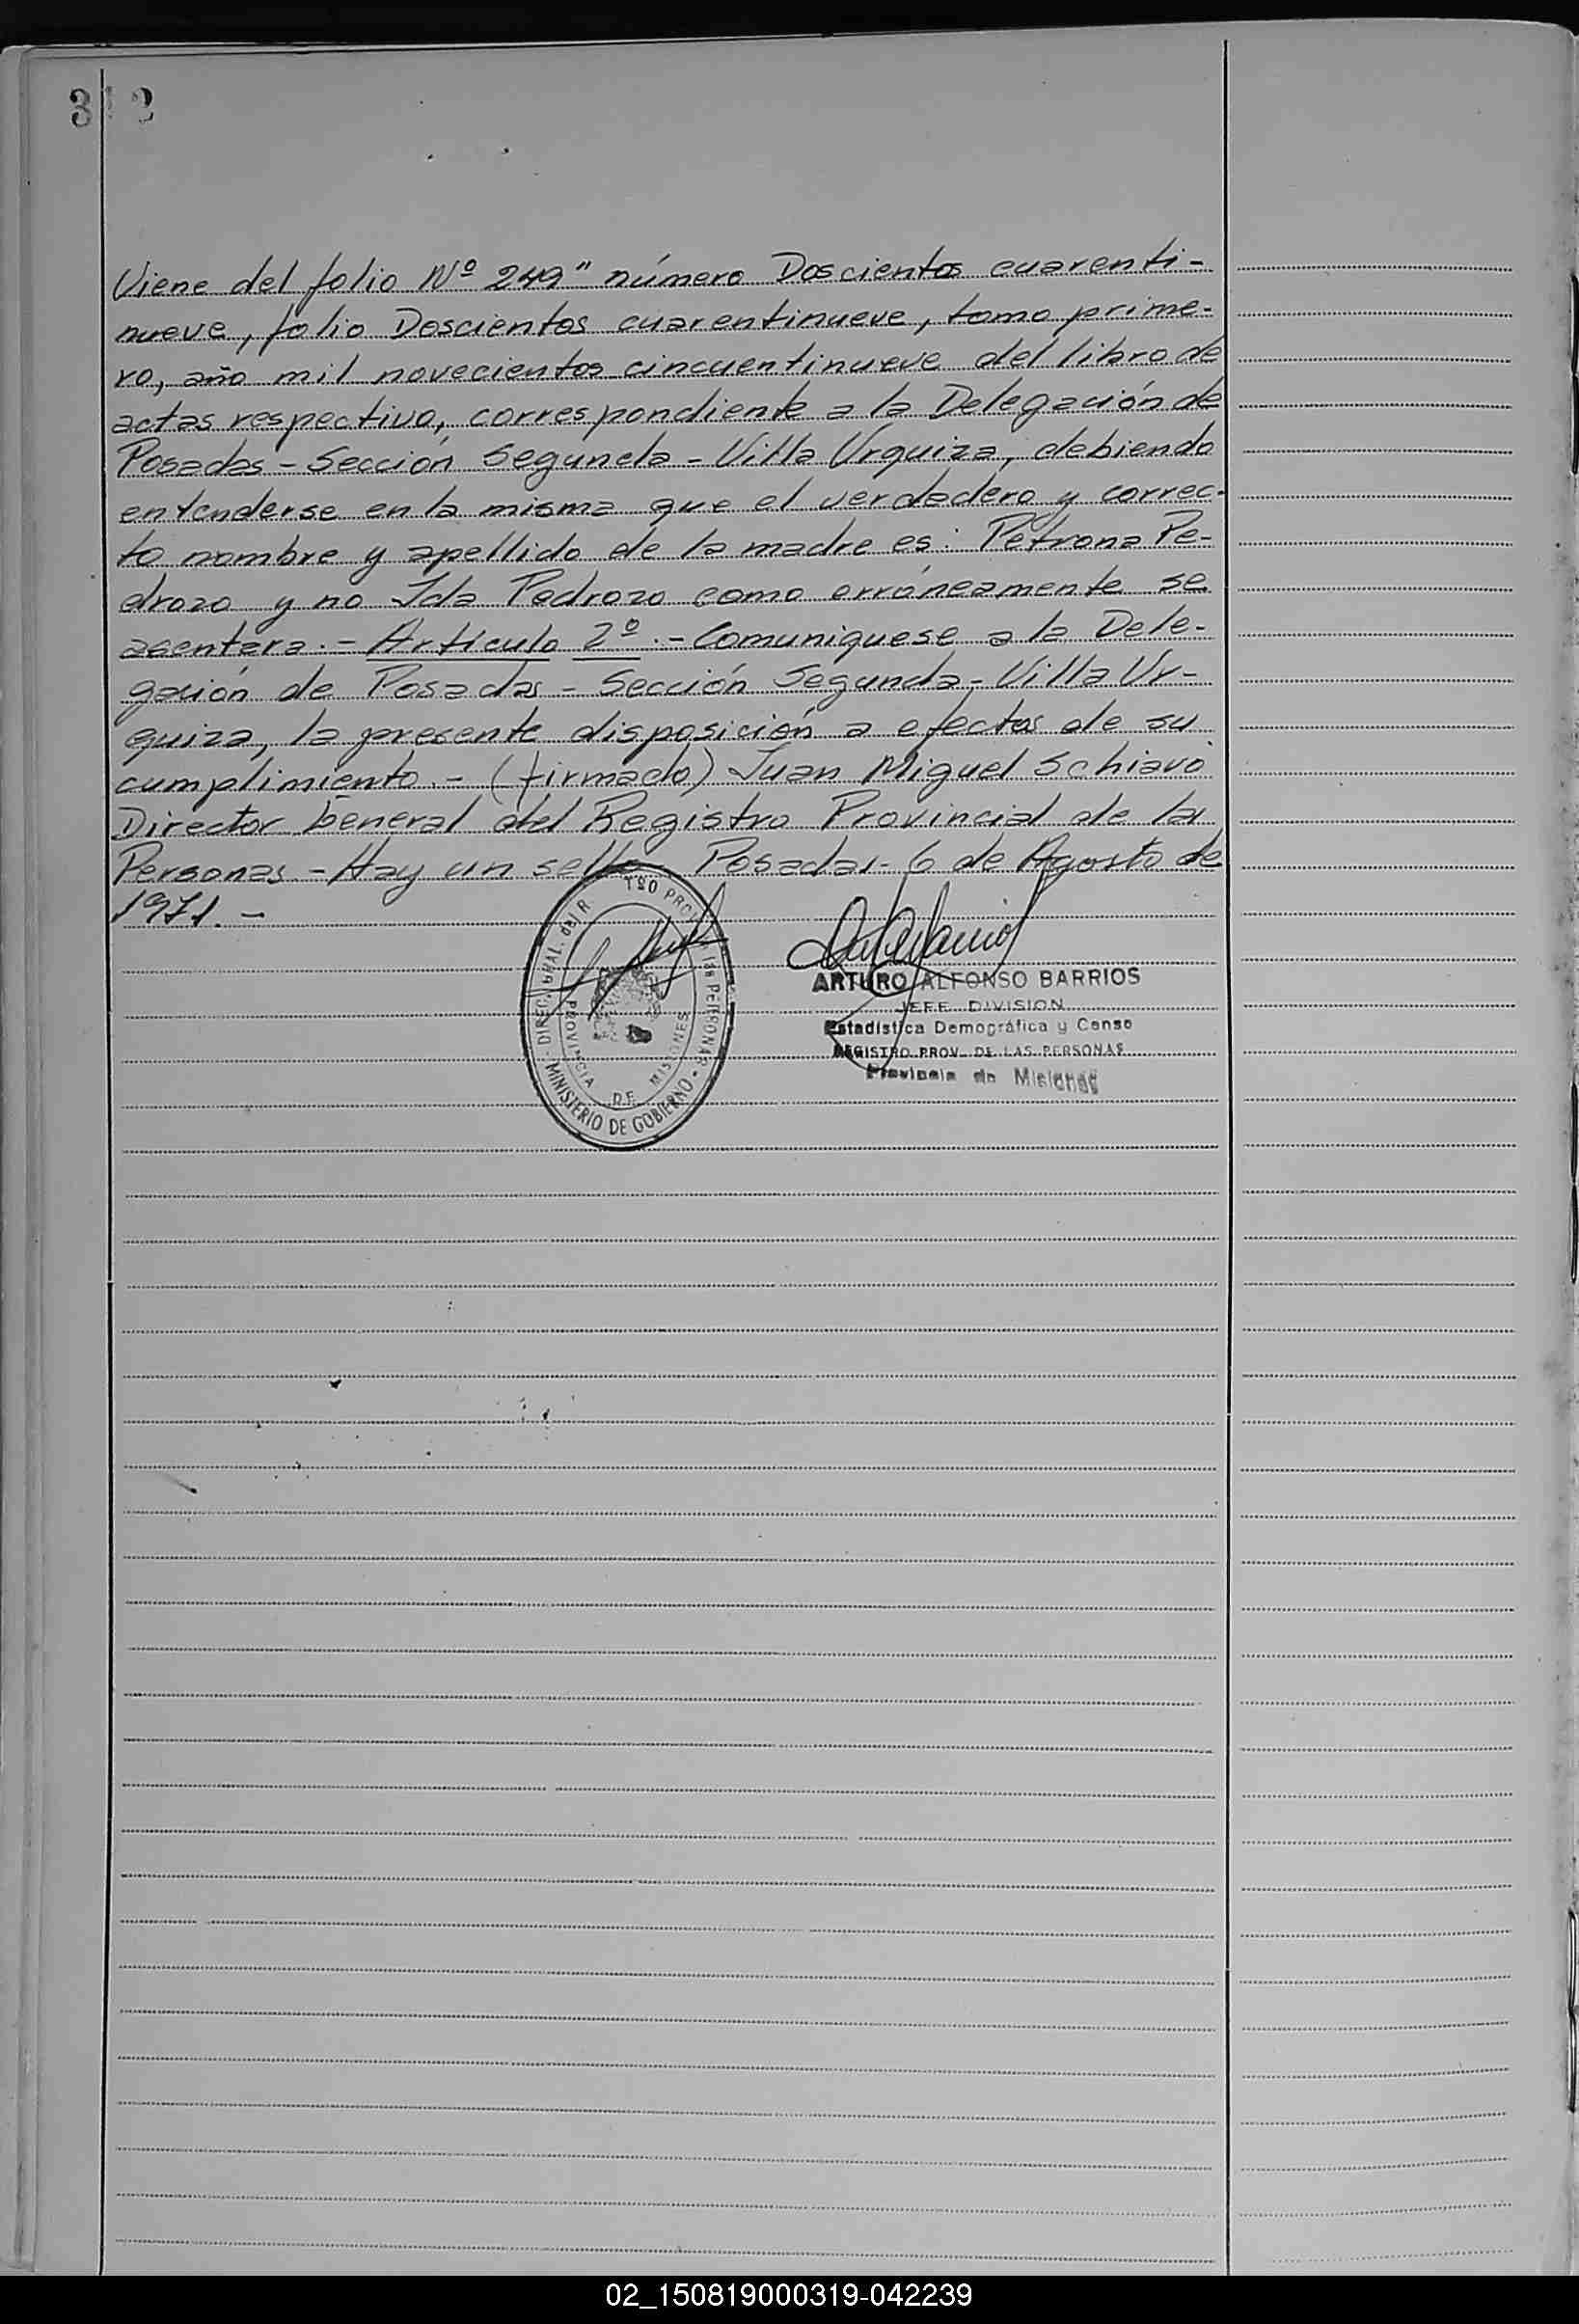 312
Viene del folio Nº 249" número Doscientos cuarenti-
nueve, folio Doscientos cuarentinueve, tomo prime-
ro, año mil novecientos cincuentinueve del libro de
actas respectivo, correspondiente a la Delegación de
Posadas - Sección Segunda - Villa Urquiza, debiendo
entenderse en la misma que el verdadero y correc-
to nombre y apellido de la madre es: Petrona Pe-
drozo y no Ida Pedrozo como erróneamente se
asentara. - Artículo 2º. - Comuniquese a la Dele-
gación de Posadas - Sección Segunda - Villa Ur-
quiza, la presente disposición a efectos de su
cumplimiento. - (firmado) Juan Miguel Schiavo
Director General del Registro Provincial de la
Personas - Hay un sello Posadas - 6 de Agosto de
1971. -
DIREC. GRAL. del R PROV las PERSONAS
PROVINCIA DE MISIONES
- MINISTERIO DE GOBIERNO -
ARTURO ALFONSO BARRIOS
JEFE DIVISION
Estadística Demográfica y Censo
REGISTRO PROV. DE LAS PERSONAS
Provincia de Misiones
02_150819000319-042239